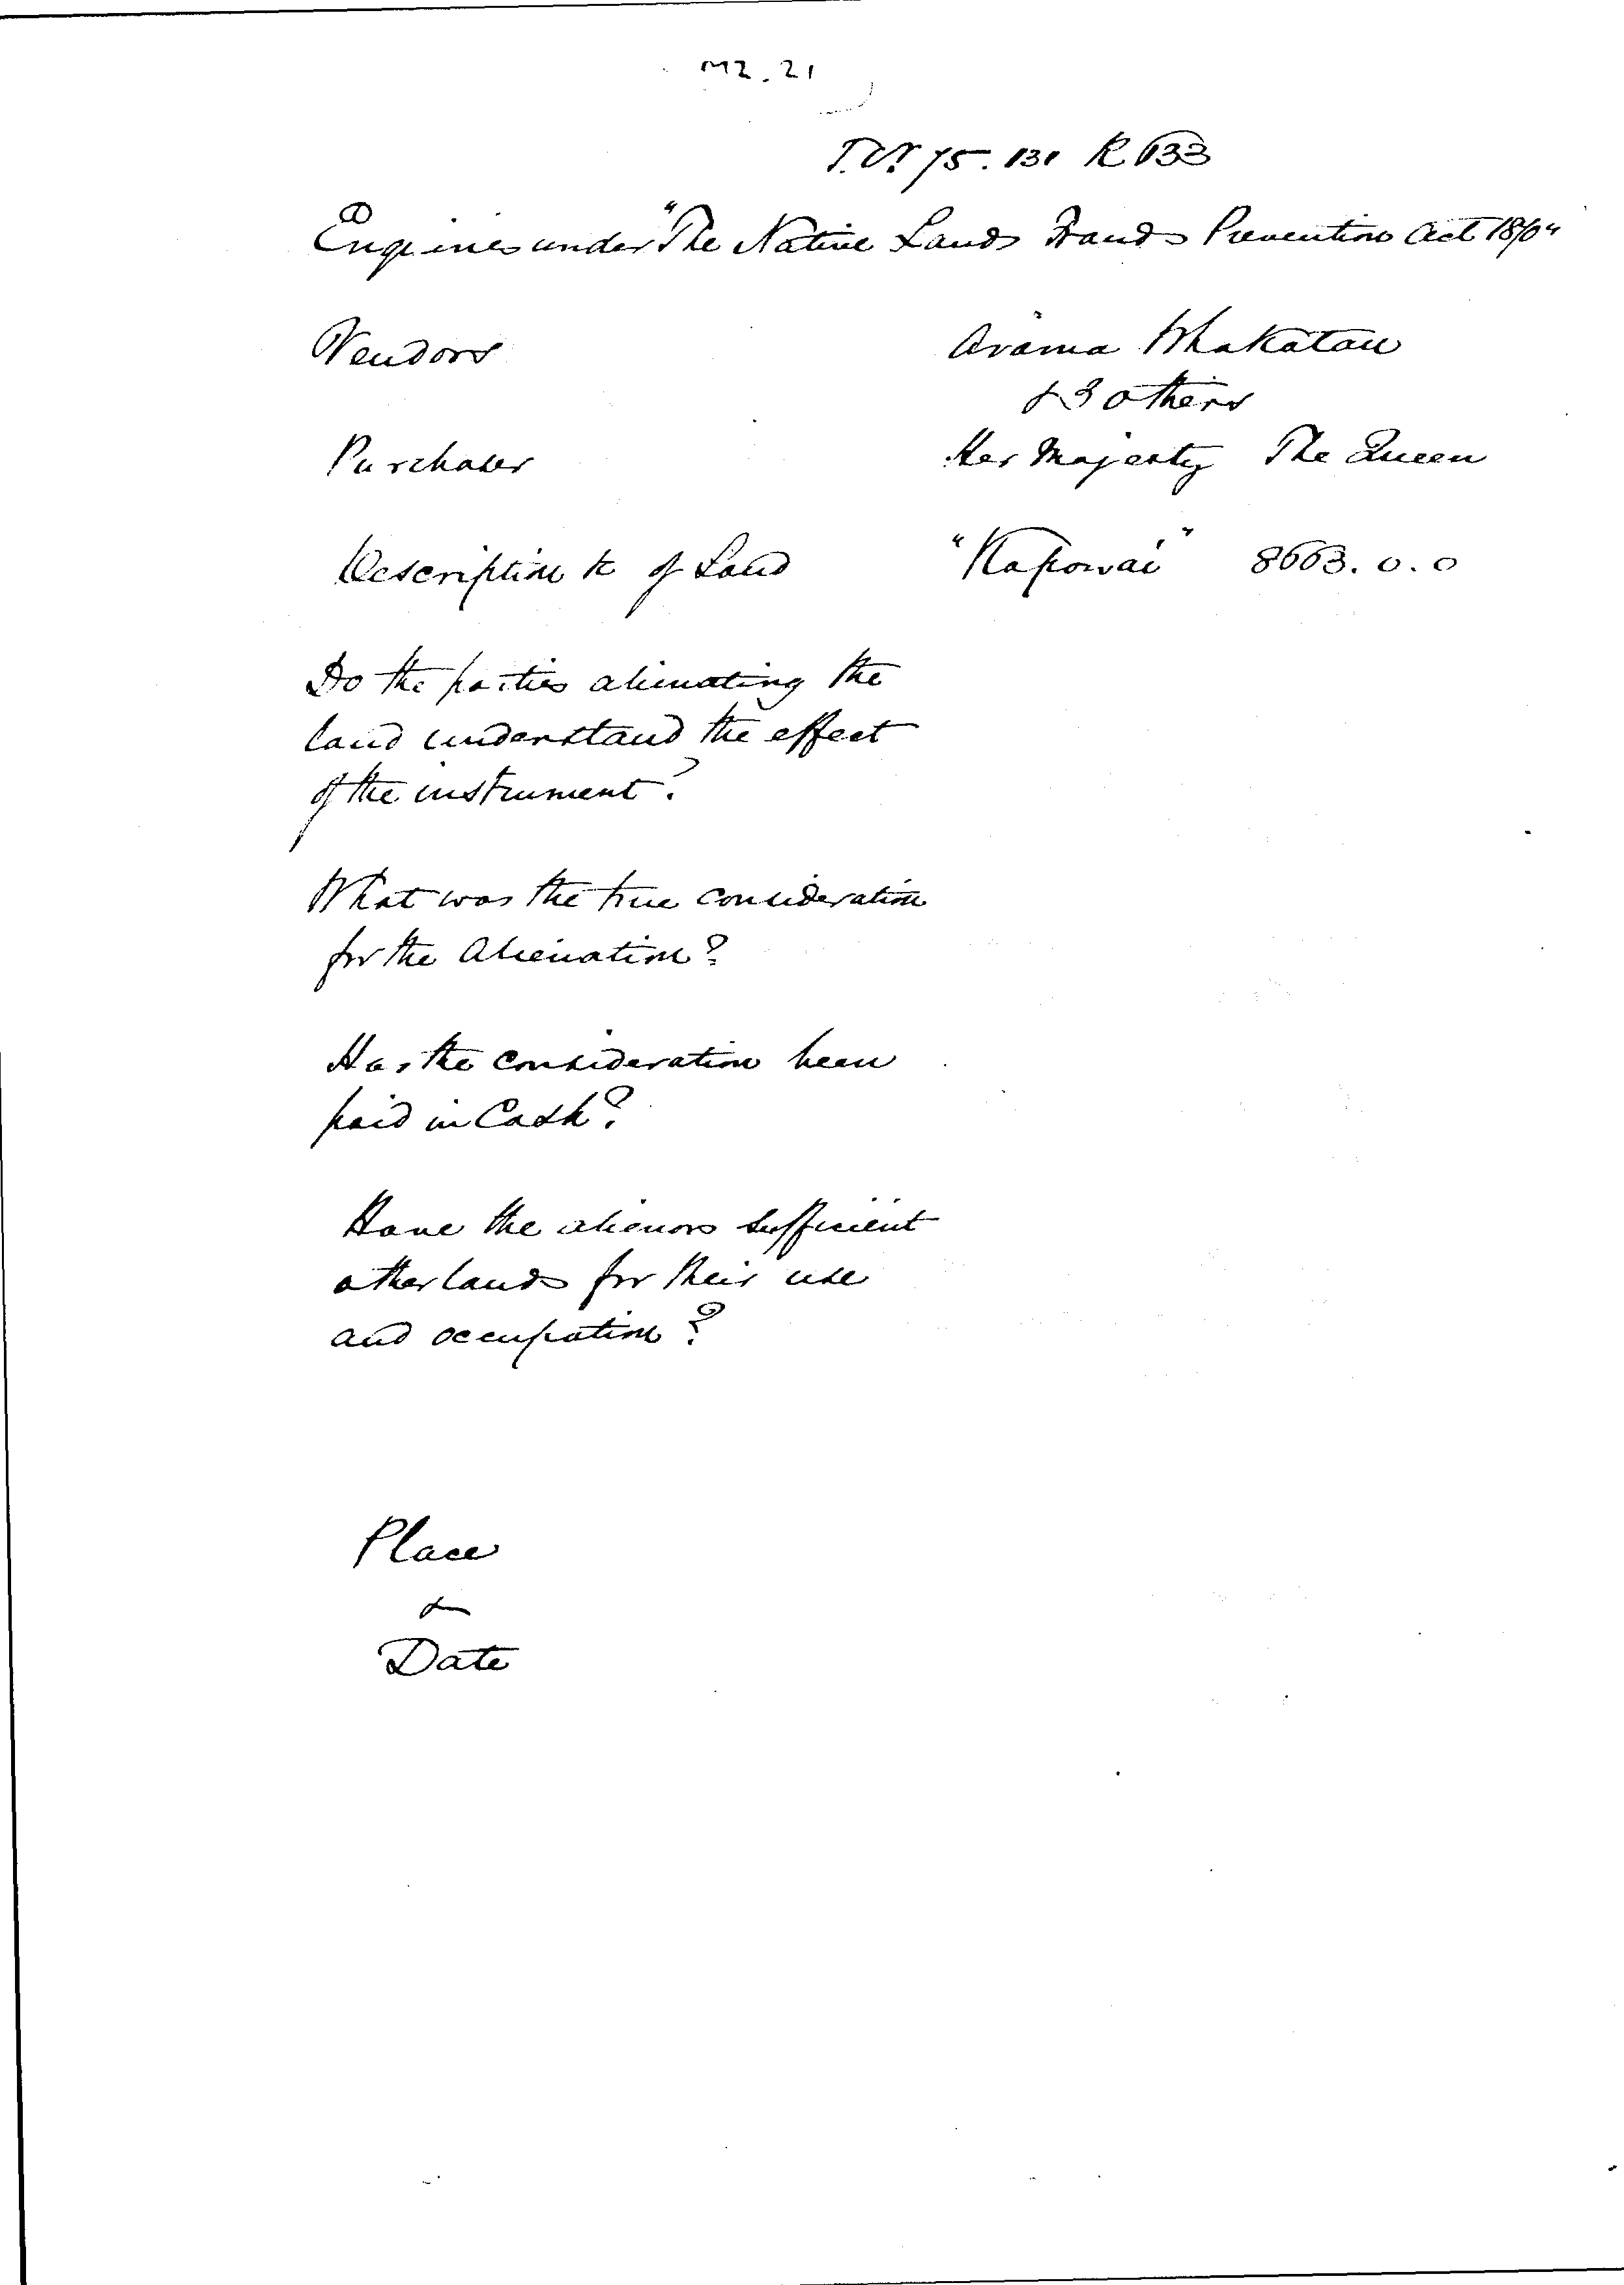 MZ. 21
T.Nr 75.131 R 633
Enquiries under "The Native Lands Frauds Prevention Act 1870"
Vendors
Arama Whakatau
& 3 others
Purchaser
Her Majesty The Queen
Description &c of Land
"Kapowai" 8663. 0. 0
Do the parties alienating the
land understand the effect
of the instrument?
What was the true consideration
for the Alienation?
Has the consideration been
paid in Cash?
Have the alienors sufficient
other lands for their use
and occupation?
Place
&
Date